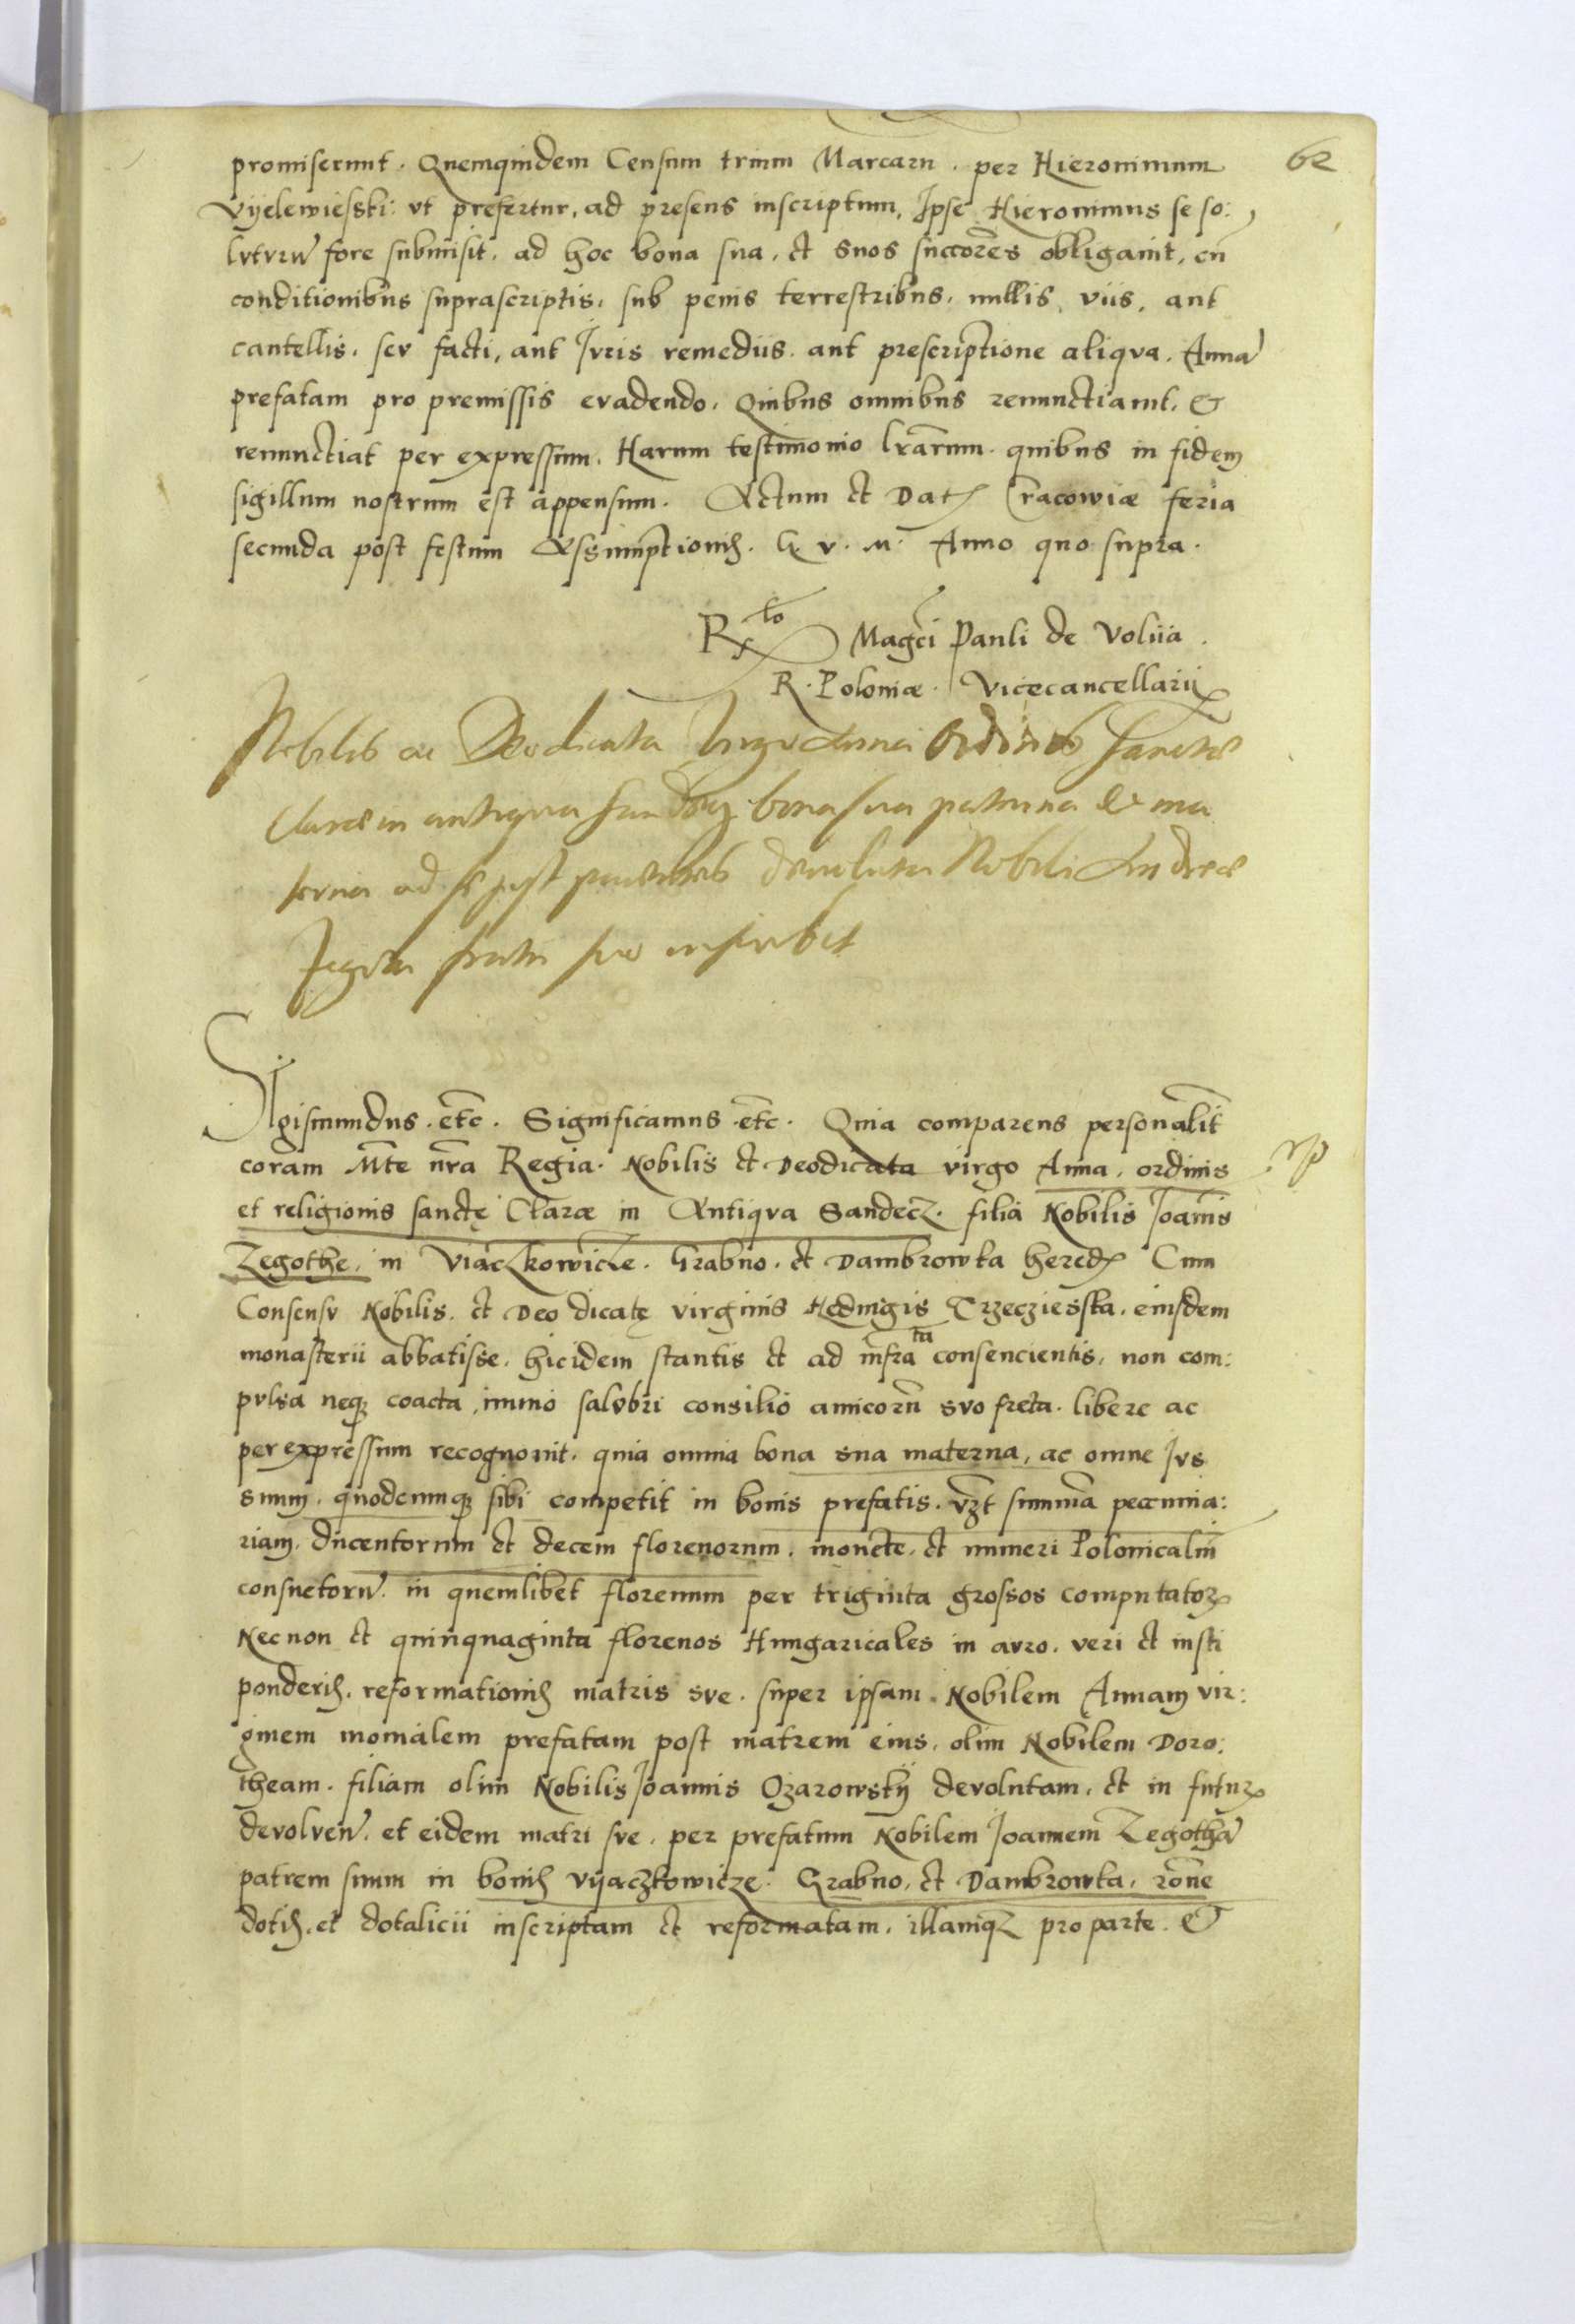 62
promiserunt. Quemquidem Censum trium Marcaru. per Hieronimum
Vyelewiesski: vt prefertur, ad presens inscriptum, Ipse Hieronimus se so:
lvtvrū fore submisit, ad hoc bona sua, et suos succores obligauit, cū
conditionibus suprascriptis, sub penis terrestribus, nullis viis, aut
cautellis, sev facti, aut Jvris remediis aut prescriptione aliqva, Annā
prefatam pro premissis evadendo, Quibus omnibus renunctiauit, &
renunctiat per expressum. Harum testimonio lrarum. quibus in fidem
sigillum nostrum est appensum. Actum et Dat Cracowiæ feria
secunda post festum Assumptionis. G. v. M. Anno quo supra.
Rto Magci Pauli de Volіia.
R. Poloniæ. Vicecancellarii
Nobilis ac Deodicata Virgo Anna Ordinis Sanctæ
Claræ in antiqua Sandecz bona sua paterna & ma
terna ad se post parentes devoluta Nobili Andreæ
Zegota fratri suo inscribit
Sigismundus. etc. Significamus. etc. Quia comparens personalit
coram Mte nra Regia. Nobilis et Deodicata virgo Anna, ordinis
et religionis sanctę Claræ in Antiqva Sandecz. filia Nobilis Joannis
Zegothe, in Viaczkowicze. Grabno. et Dambrowka hered Cum
Consensv Nobilis. et Deo dicatę virginis Hedvigis Trzecziesska. eiusdem
monasterii abbatisse, hicidem stantis et ad infra ta consencientis, non com:
pvlsa neq coacta, immo salvbri consilio amicorū svo freta. libere ac
per expressum recognouit. quia omnia bona sua materna, ac omne Jvs
suum. quodcumq sibi competit in bonis prefatis. vzt summa pecunia:
riam. ducentorum et decem florenorum. monete. et numeri Polonicalm
consuetorū. in quemlibet florenum per triginta grossos computator
Necnon et quinquaginta florenos Hungaricales in avro. veri et iusti
ponderis. reformationis matris sve. super ipsam. Nobilem Annam vir:
ginem monialem prefatam post matrem eius, olim Nobilem Doro:
theam. filiam olim Nobilis Joannis Ozarowskij devolutam, et in futur
devolven. et eidem matri sve. per prefatum Nobilem Joannem Zegothā
patrem suum in bonis vyaczkowicze. Grabno, et Dambrowka, rone
dotis. et dotalicii inscriptam et reformatam. illamq pro parte. &